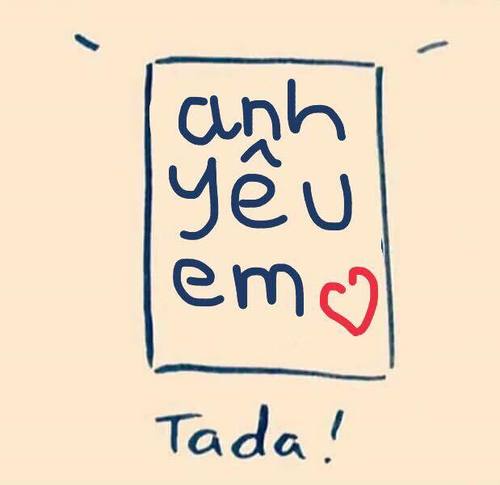 anh
yêu
em
Tada!